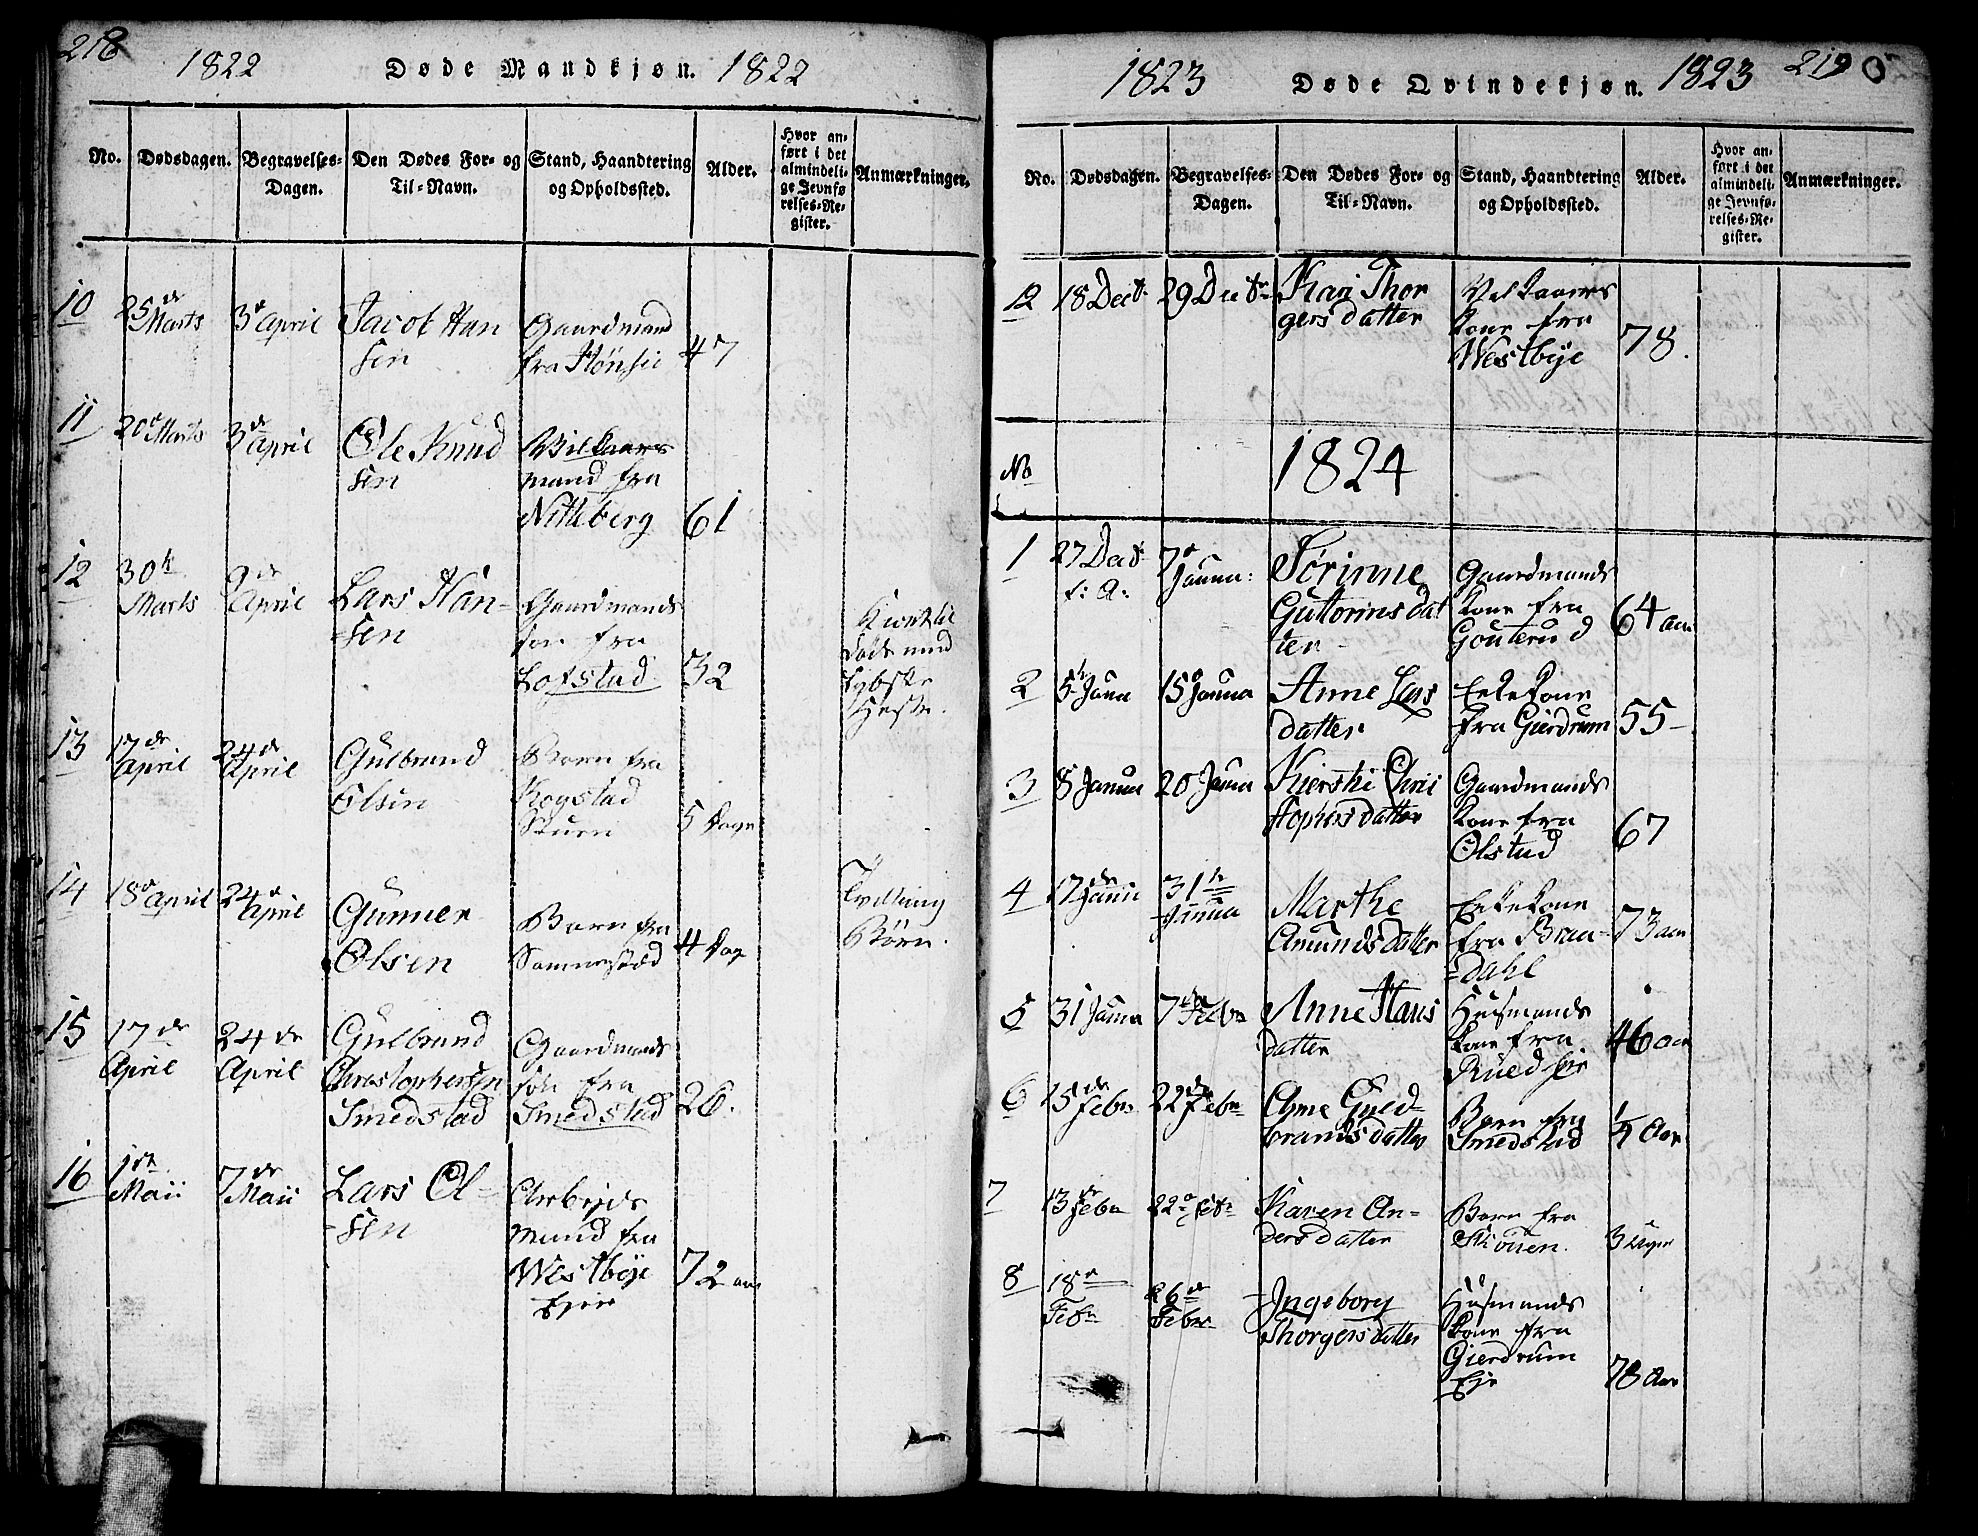 218
1822
Døde Mandkjøn.
1822
No.
Dødsdagen.
Begravelses-
Dagen.
Den Dødes For- og
Til-Navn.
Stand, Haandtering
og Opholdssted.
Alder.
Hvor an-
ført i det
almindeli-
ge Jevnfø
relses-Re-
gister.
Anmærkninger.
10
25de
Marts
3de April
Jacob Han
sen
Gaardmand
fra Hønsie
47
11
20de Marts
3de
April
Ole Knud
sen
Vilkaars
mand fra
Nitteberg
61
12
30te
Marts
9de
April
Lars Han-
sen
Gaardmands
søn fra
Lofstad
32
døde med
13
17de
April
24de
April
Gulbrand
Olsen
Barn fra
Kogstad
5 Dage
14
18de April
24de
April
Gunner
Olsen
Barn fra
4 Dag
Tvilling
Børn.
15
17de
April
24de
April
Gulbrand
Christophersen
Smedstad
Gaardmands
søn fra
Smedstad
26.
16
1ste
Maii
7de
Maii
Lars Ol-
sen
Arbejds
mand fra
Westbye
Ejer
72 aar
1823
Døde Qvindekjøn.
1823
219
No.
Dødsdagen.
Begravelses-
Dagen.
Den Dødes For- og
Til-Navn.
Stand, Haandtering
og Opholdssted.
Alder.
Hvor an-
ført i det
almindeli-
ge Jevnfø-
relses-Re-
gister.
Anmærkninger.
12
18 Decb.
29 Decbr
Kari Thor
gersdatter
Vilkaars
kone fra
Westbye
78.
No
1824
1
27 Decb.
f: A:
7de
Janua:
Sørinne
Guttormsdat
ter
Gaardmands
kone fra
Gouterud
64 aar
2
5te Janu
15de Janua
Anne Lars
datter
Enkekone
fra Gierdrum
55
3
8 Janua
20 Janua
Kiersti Chri
stophersdatter
Gaardmands
kone fra
Olstad
67
4
17de
Janu
31te
Janua
Marthe
Amundsdatter
Enkekone
fra Bran-
dahl
73 aar
5
31 Janua
7de Febr
Anne Hans
datter
Husmands
kone fra
46 aar
6
15de
Febr
22de
Febr
Anne Guld-
brandsdatter
Barn fra
Smedstad
1/4 Aar
7
13de
Febr
22de Feb
Karen An-
dersdatter
Barn fra
Skouen.
3 Uger
8
18de
Feb
26de
Febr
Ingeborg
Thorgersdatter
Husmands
kone fra
Gierdrum
Eje
78 Aar